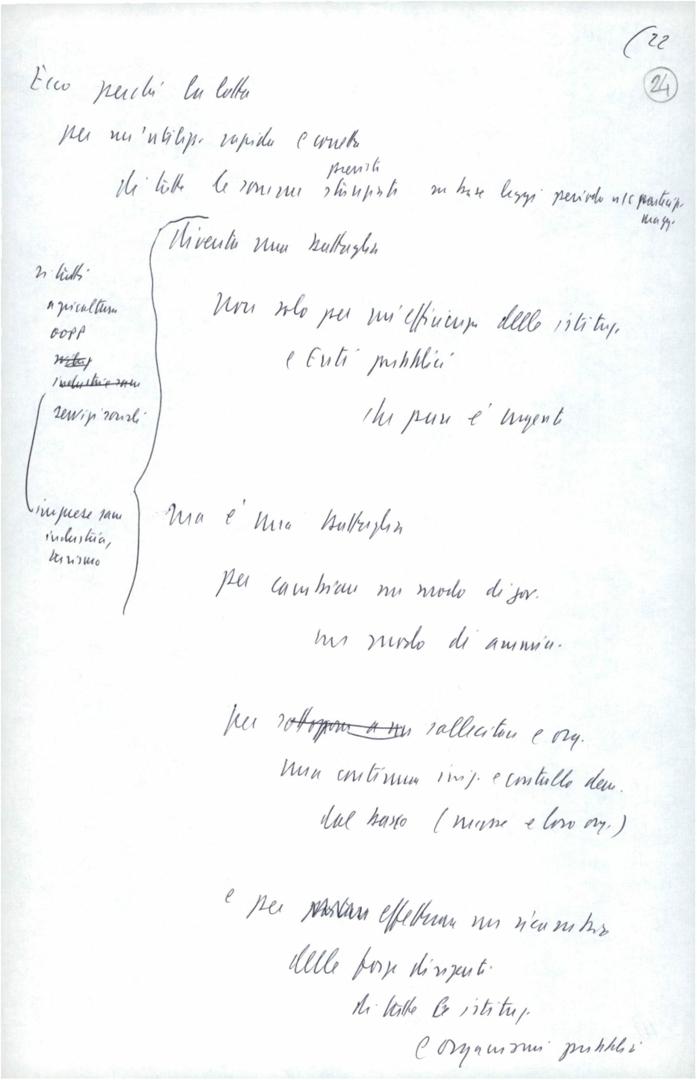 (22
24
Ecco perché la lotta
per un'utilizz. rapida e corretta
previsti
di tutte le somme stanziati su base leggi periodo
magg.
diventa una battaglia
non solo per un'efficienza delle istituz.
e Enti pubblici
che pure è urgente
in tutti
agricoltura
OOPP
servizi sociali
imprese
industria,
turismo
ma è una battaglia
per cambiare un modo di gov.
un modo di ammin.
per sottoporre a un sollecitare e org.
una continua iniz. e controllo dem.
dal basso (masse e loro org.)
e per effettuare un ricambio
delle forze dirigenti
di tutte le istituz.
e organismi pubblici